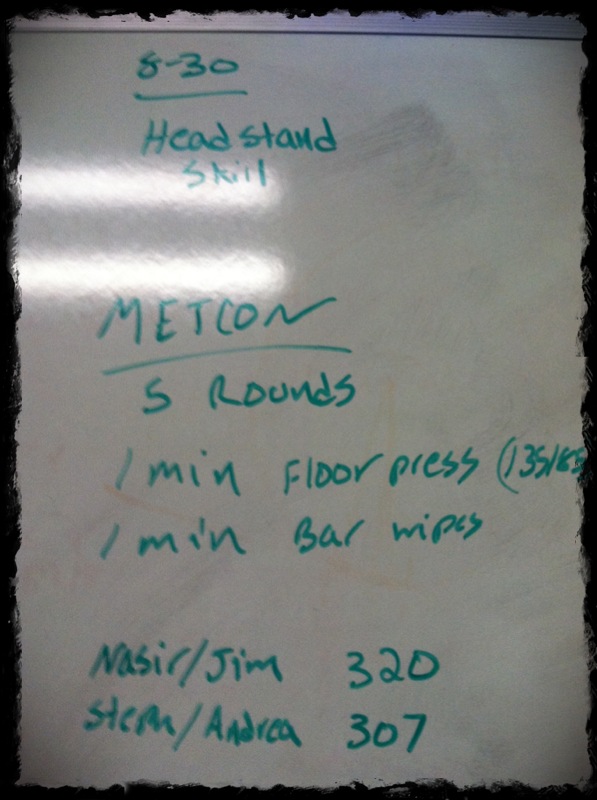 8-30
Head stand
Skill
METCON
5 Rounds
1 min Floor press (135/85
1 min Bar wipes
Nasir/Jim 320
Steph/Andrea 307